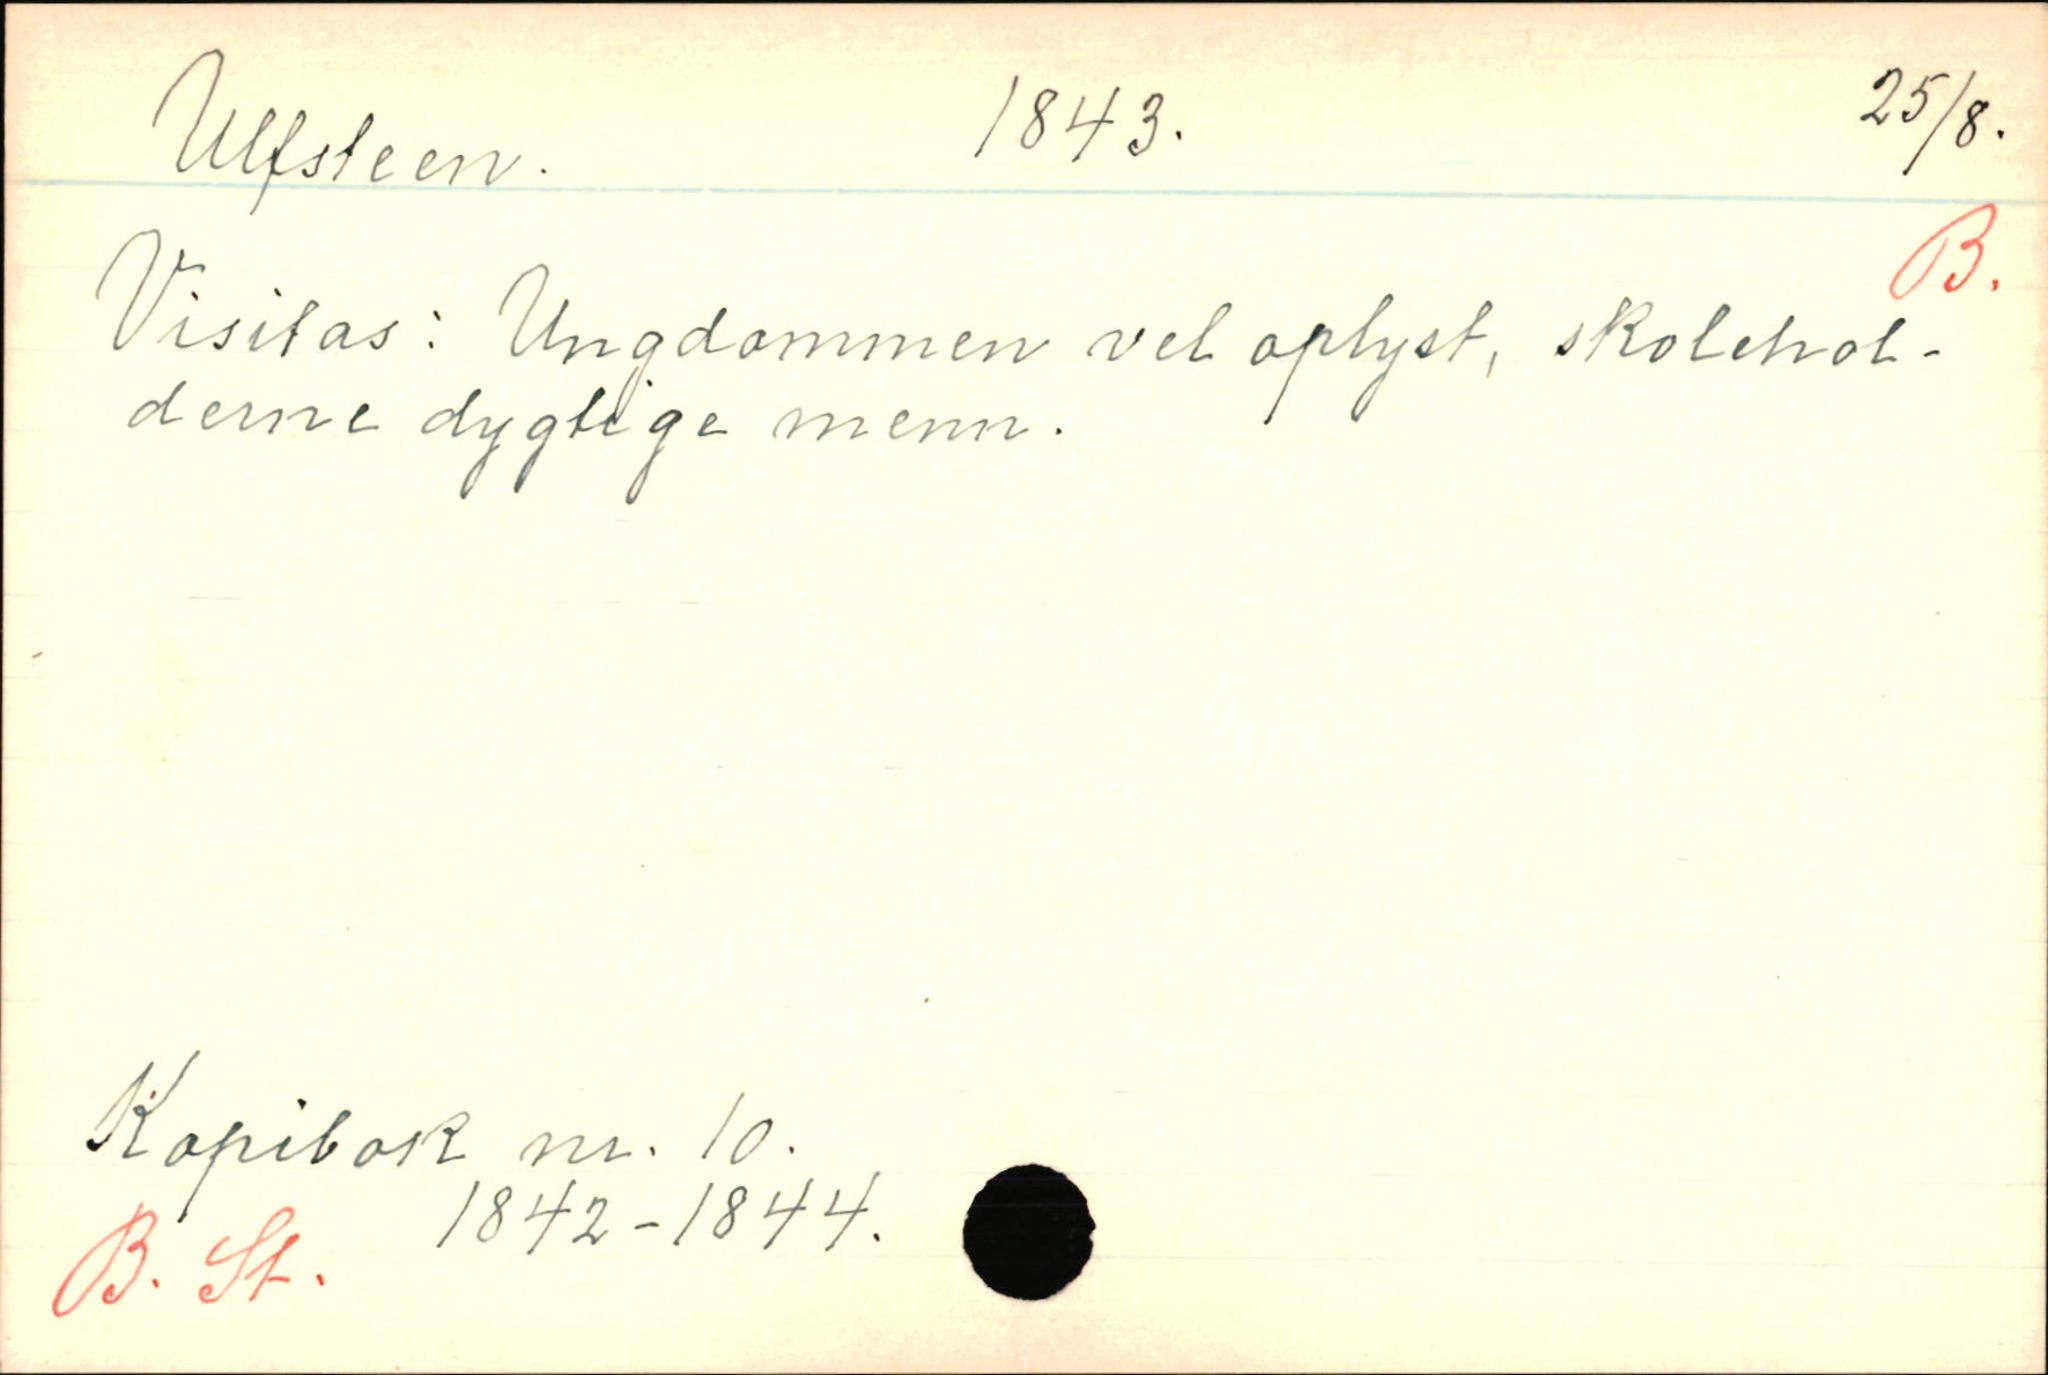 Ulfsteen. 1843. 25/8.
B.
Visitas: Ungdommen vel oplyst, skolehol-
derne dygtige menn.
Kopibok nr. 10.
1842-1844.
B. St.